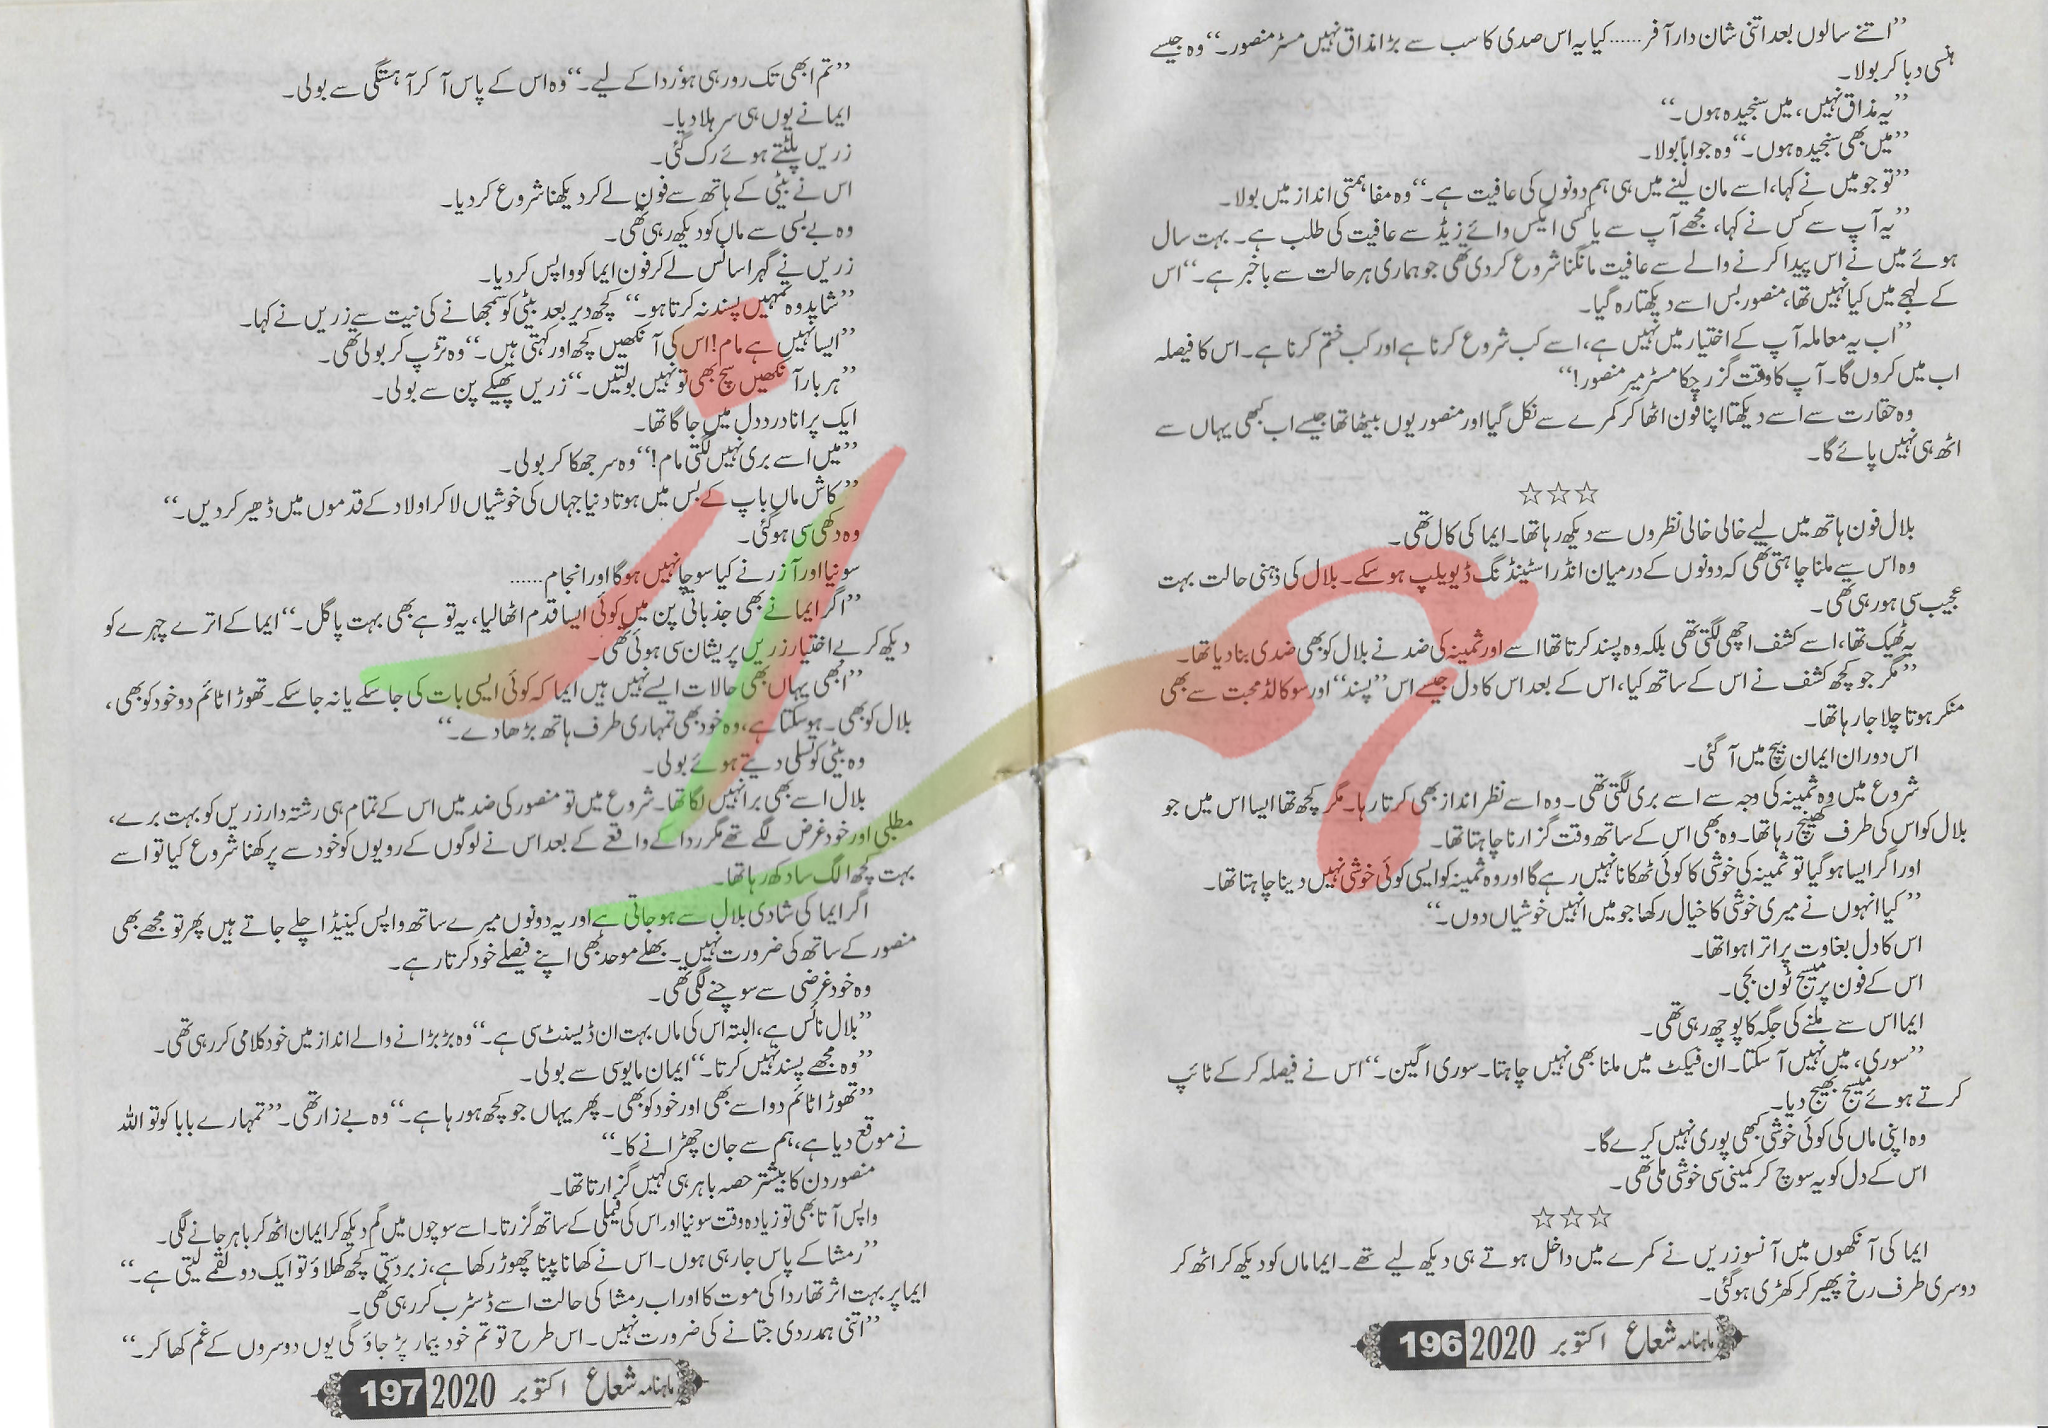 ”اتنے سالوں بعد اتنی شان دار آفر......کیا یہ اس صدی کا سب سے بڑا مذاق نہیں مسٹر منصور۔“ وہ جیسے
ہنسی دبا کر بولا۔
”یہ مذاق نہیں، میں سنجیدہ ہوں۔“
”میں بھی سنجیدہ ہوں۔“ وہ جواباً بولا۔
”تو جو میں نے کہا، اسے مان لینے میں ہی ہم دونوں کی عافیت ہے۔“ وہ مفاہمتی انداز میں بولا۔
”یہ آپ سے کس نے کہا، مجھے آپ سے یا کسی ایکس وائے زیڈ سے عافیت کی طلب ہے۔ بہت سال
ہوئے میں نے اس پیدا کرنے والے سے عافیت مانگنا شروع کر دی تھی جو ہماری ہر حالت سے باخبر ہے۔“ اس
کے لہجے میں کیا نہیں تھا، منصور بس اسے دیکھتا رہ گیا۔
”اب یہ معاملہ آپ کے اختیار میں نہیں ہے، اسے کب شروع کرنا ہے اور کب ختم کرنا ہے۔ اس کا فیصلہ
اب میں کروں گا۔ آپ کا وقت گزر چکا مسٹر میر منصور!“
وہ حقارت سے اسے دیکھتا اپنا فون اٹھا کر کمرے سے نکل گیا اور منصور یوں بیٹھا تھا جیسے اب کبھی یہاں سے
اٹھ ہی نہیں پائے گا۔
☆☆☆
بلال فون ہاتھ میں لیے خالی خالی نظروں سے دیکھ رہا تھا۔ ایما کی کال تھی۔
وہ اس سے ملنا چاہتی تھی کہ دونوں کے درمیان انڈر اسٹینڈنگ ڈیویلپ ہو سکے۔ بلال کی ذہنی حالت بہت
عجیب سی ہو رہی تھی۔
یہ ٹھیک تھا، اسے کشف اچھی لگتی تھی بلکہ وہ پسند کرتا تھا اسے اور ثمینہ کی ضد نے بلال کو بھی ضدی بنا دیا تھا۔
”مگر جو کچھ کشف نے اس کے ساتھ کیا، اس کے بعد اس کا دل جیسے اس ”پسند“ اور سو کالڈ محبت سے بھی
منکر ہوتا چلا جا رہا تھا۔
اس دوران ایمان بیچ میں آ گئی۔
شروع میں وہ ثمینہ کی وجہ سے اسے بری لگتی تھی۔ وہ اسے نظر انداز بھی کرتا رہا۔ مگر کچھ تھا ایسا اس میں جو
بلال کو اس کی طرف کھینچ رہا تھا۔ وہ بھی اس کے ساتھ وقت گزارنا چاہتا تھا۔
اور اگر ایسا ہو گیا تو ثمینہ کی خوشی کا کوئی ٹھکانا نہیں رہے گا اور وہ ثمینہ کو ایسی کوئی خوشی نہیں دینا چاہتا تھا۔
”کیا انہوں نے میری خوشی کا خیال رکھا جو میں انہیں خوشیاں دوں۔“
اس کا دل بغاوت پر اترا ہوا تھا۔
اس کے فون پر میسج ٹون بجی۔
ایما اس سے ملنے کی جگہ کا پوچھ رہی تھی۔
”سوری، میں نہیں آ سکتا۔ ان فیکٹ میں ملنا بھی نہیں چاہتا۔ سوری اگین۔“ اس نے فیصلہ کر کے ٹائپ
کرتے ہوئے میسج بھیج دیا۔
وہ اپنی ماں کی کوئی خوشی کبھی پوری نہیں کرے گا۔
اس کے دل کو یہ سوچ کر کمینی سی خوشی ملی تھی۔
☆☆☆
ایما کی آنکھوں میں آنسو زریں نے کمرے میں داخل ہوتے ہی دیکھ لیے تھے۔ ایما ماں کو دیکھ کر اٹھ کر
دوسری طرف رخ پھیر کر کھڑی ہو گئی۔
ماہنامہ شعاع اکتوبر 2020 196
”تم ابھی تک رو رہی ہو رُدا کے لیے۔“ وہ اس کے پاس آ کر آہستگی سے بولی۔
ایما نے یوں ہی سر ہلا دیا۔
زریں پلٹتے ہوئے رک گئی۔
اس نے بیٹی کے ہاتھ سے فون لے کر دیکھنا شروع کر دیا۔
وہ بے بسی سے ماں کو دیکھ رہی تھی۔
زریں نے گہرا سانس لے کر فون ایما کو واپس کر دیا۔
”شاید وہ تمہیں پسند نہ کرتا ہو۔“ کچھ دیر بعد بیٹی کو سمجھانے کی نیت سے زریں نے کہا۔
”ایسا نہیں ہے مام! اس کی آنکھیں کچھ اور کہتی ہیں۔“ وہ تڑپ کر بولی تھی۔
”ہر بار آنکھیں سچ بھی تو نہیں بولتیں۔“ زریں پھیکے پن سے بولی۔
ایک پرانا درد دل میں جاگا تھا۔
”میں اسے بری نہیں لگتی مام!“ وہ سر جھکا کر بولی۔
”کاش ماں باپ کے بس میں ہوتا دنیا جہاں کی خوشیاں لا کر اولاد کے قدموں میں ڈھیر کر دیں۔“
وہ دکھی سی ہو گئی۔
سونیا اور آزر نے کیا سوچا نہیں ہوگا اور انجام......
”اگر ایما نے بھی جذباتی پن میں کوئی ایسا قدم اٹھا لیا، یہ تو ہے بھی بہت پاگل۔“ ایما کے اترے چہرے کو
دیکھ کر بے اختیار زریں پریشان سی ہوئی تھی۔
”ابھی یہاں بھی حالات ایسے نہیں ہیں ایما کہ کوئی ایسی بات کی جا سکے یا نہ جا سکے۔ تھوڑا ٹائم دو خود کو بھی،
بلال کو بھی۔ ہو سکتا ہے، وہ خود بھی تمہاری طرف ہاتھ بڑھا دے۔“
وہ بیٹی کو تسلی دیتے ہوئے بولی۔
بلال اسے بھی برا نہیں لگا تھا۔ شروع میں تو منصور کی ضد میں اس کے تمام ہی رشتہ دار زریں کو بہت برے،
مطلبی اور خود غرض لگے تھے مگر ردا کے واقعے کے بعد اس نے لوگوں کے رویوں کو خود سے پرکھنا شروع کیا تو اسے
بہت کچھ الگ سا دکھ رہا تھا۔
اگر ایما کی شادی بلال سے ہو جاتی ہے اور یہ دونوں میرے ساتھ واپس کینیڈا چلے جاتے ہیں پھر تو مجھے بھی
منصور کے ساتھ کی ضرورت نہیں۔ بھلے موحد بھی اپنے فیصلے خود کرتا رہے۔
وہ خود غرضی سے سوچنے لگی تھی۔
”بلال نائس ہے، البتہ اس کی ماں بہت ان ڈیسنٹ سی ہے۔“ وہ بڑبڑانے والے انداز میں خود کلامی کر رہی تھی۔
”وہ مجھے پسند نہیں کرتا۔“ ایمان مایوسی سے بولی۔
”تھوڑا ٹائم دو اسے بھی اور خود کو بھی۔ پھر یہاں جو کچھ ہو رہا ہے۔“ وہ بے زار تھی۔ ”تمہارے بابا کو تو اللہ
نے موقع دیا ہے، ہم سے جان چھڑانے کا۔“
منصور دن کا بیشتر حصہ باہر ہی کہیں گزارتا تھا۔
واپس آتا بھی تو زیادہ وقت سونیا اور اس کی فیملی کے ساتھ گزرتا۔ اسے سوچوں میں گم دیکھ کر ایمان اٹھ کر باہر جانے لگی۔
”رمشا کے پاس جا رہی ہوں۔ اس نے کھانا پینا چھوڑ رکھا ہے، زبردستی کچھ کھلاؤ تو ایک دو لقمے لیتی ہے۔“
ایما پر بہت اثر تھا ردا کی موت کا اور اب رمشا کی حالت اسے ڈسٹرب کر رہی تھی۔
”اتنی ہمدردی جتانے کی ضرورت نہیں۔ اس طرح تو تم خود بیمار پڑ جاؤ گی یوں دوسروں کے غم کھا کر۔“
ماہنامہ شعاع اکتوبر 2020 197